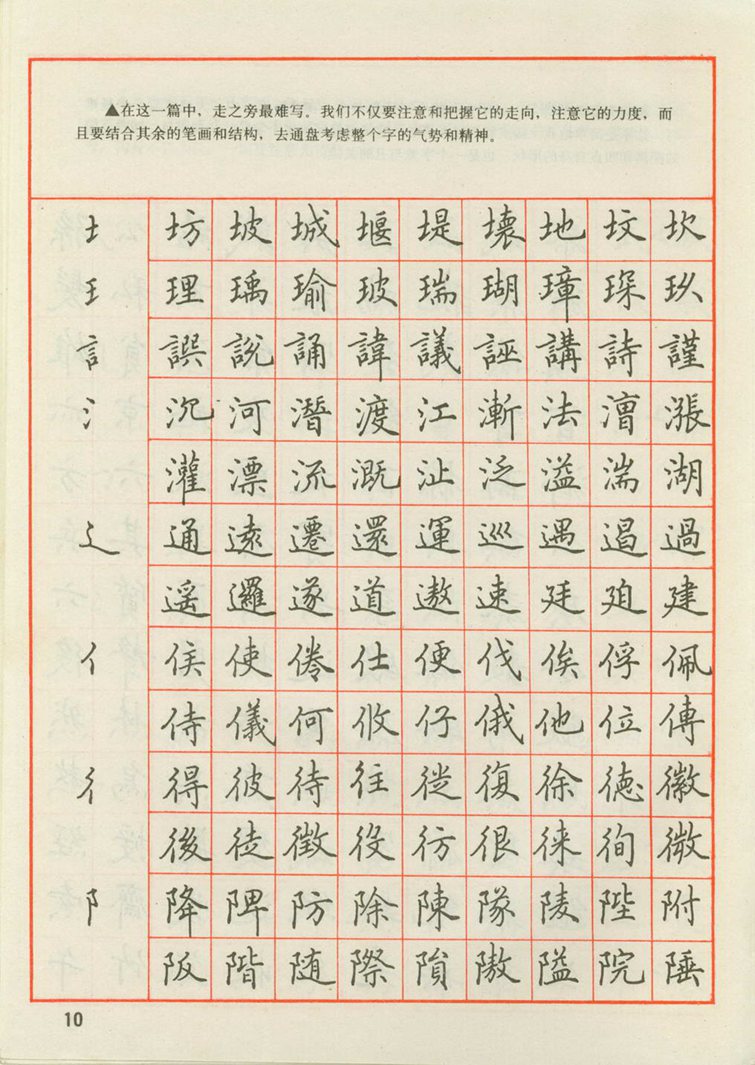 ▲在这一篇中，走之旁最难写。我们不仅要注意和把握它的走向，注意它的力度，而
且要结合其余的笔画和结构，去通盘考虑整个字的气势和精神。
土 坊 坡 城 堰 堤 壊 地 坟 坎
王 理 瑀 瑜 玻 瑞 瑚 璋 琛 玖
訁 誤 説 誦 諱 議 誣 講 詩 謹
氵 沉 河 潛 渡 江 漸 法 漕 漲
灌 漂 流 溉 沚 泛 溢 湍 湖
辶 通 遠 遷 還 運 巡 遇 遏 過
遥 邏 遂 道 遨 速 廷 廻 建
亻 侯 使 倦 仕 便 伐 俟 俘 佩
侍 儀 何 攸 仔 俄 他 位 傳
彳 得 彼 待 往 從 復 徐 德 徽
後 徒 徵 役 彷 很 徠 徇 微
阝 降 陴 防 除 陳 隊 陵 陛 附
阪 階 随 際 隕 隘 院 陲
10